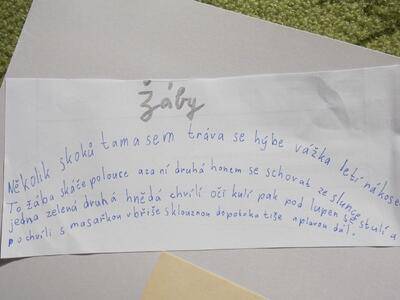 žáby
Několik skoků tam a sem tráva se hýbe vážka letí nákosem
To žába skáče po louce a za ní druhá honem se schovat ze slunce
jedna zelená druhá hnědá chvíli očí kulí pak pod lupen se stulí a
po chvíli s masařkou v břiše sklouznou do potoka tiše a plavou dál.